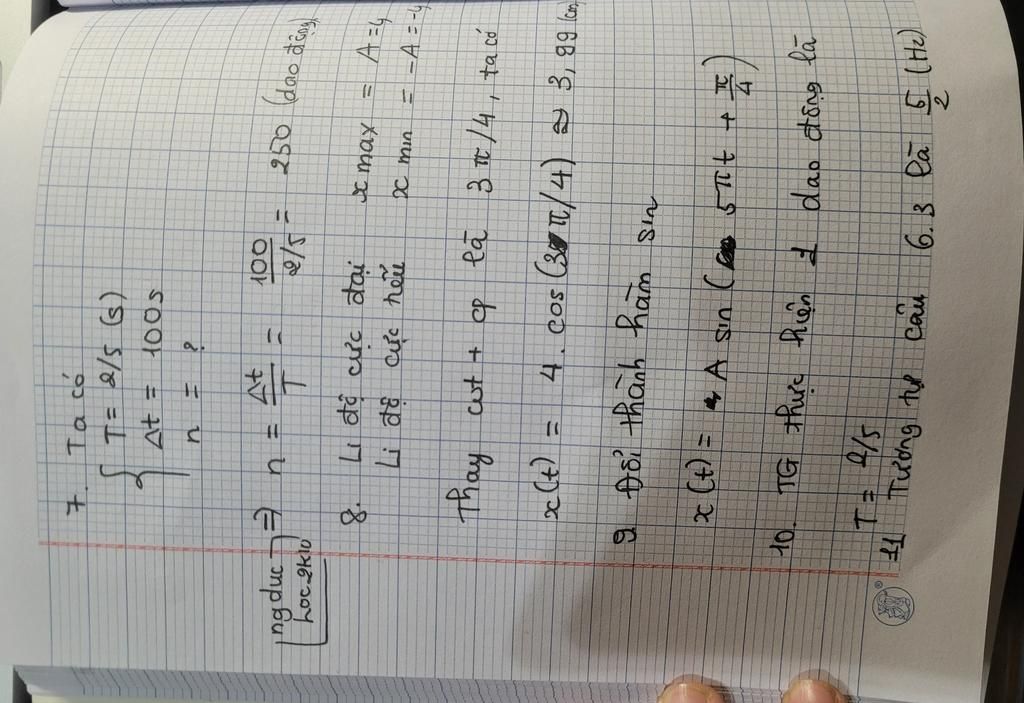 7. Ta có
T = 2/5 (s)
Δt = 100s
n = ?
ng duc
hoc 2k10
=> n = Δt/T = 100/2/5 = 250 (dao động)
8. Li độ cực đại x max = A = 4
Li độ cực tiểu x min = -A = -4
Thay ωt + φ là 3π/4, ta có
x(t) = 4. cos (3π/4) ≈ 3,99 (cm)
9. Đổi thành hàm sin
x(t) = A sin (5πt + π/4)
10. TG thực hiện 1 dao động là
T = 2/5
11 Tương tự câu 6.3 là 5/2 (Hz)